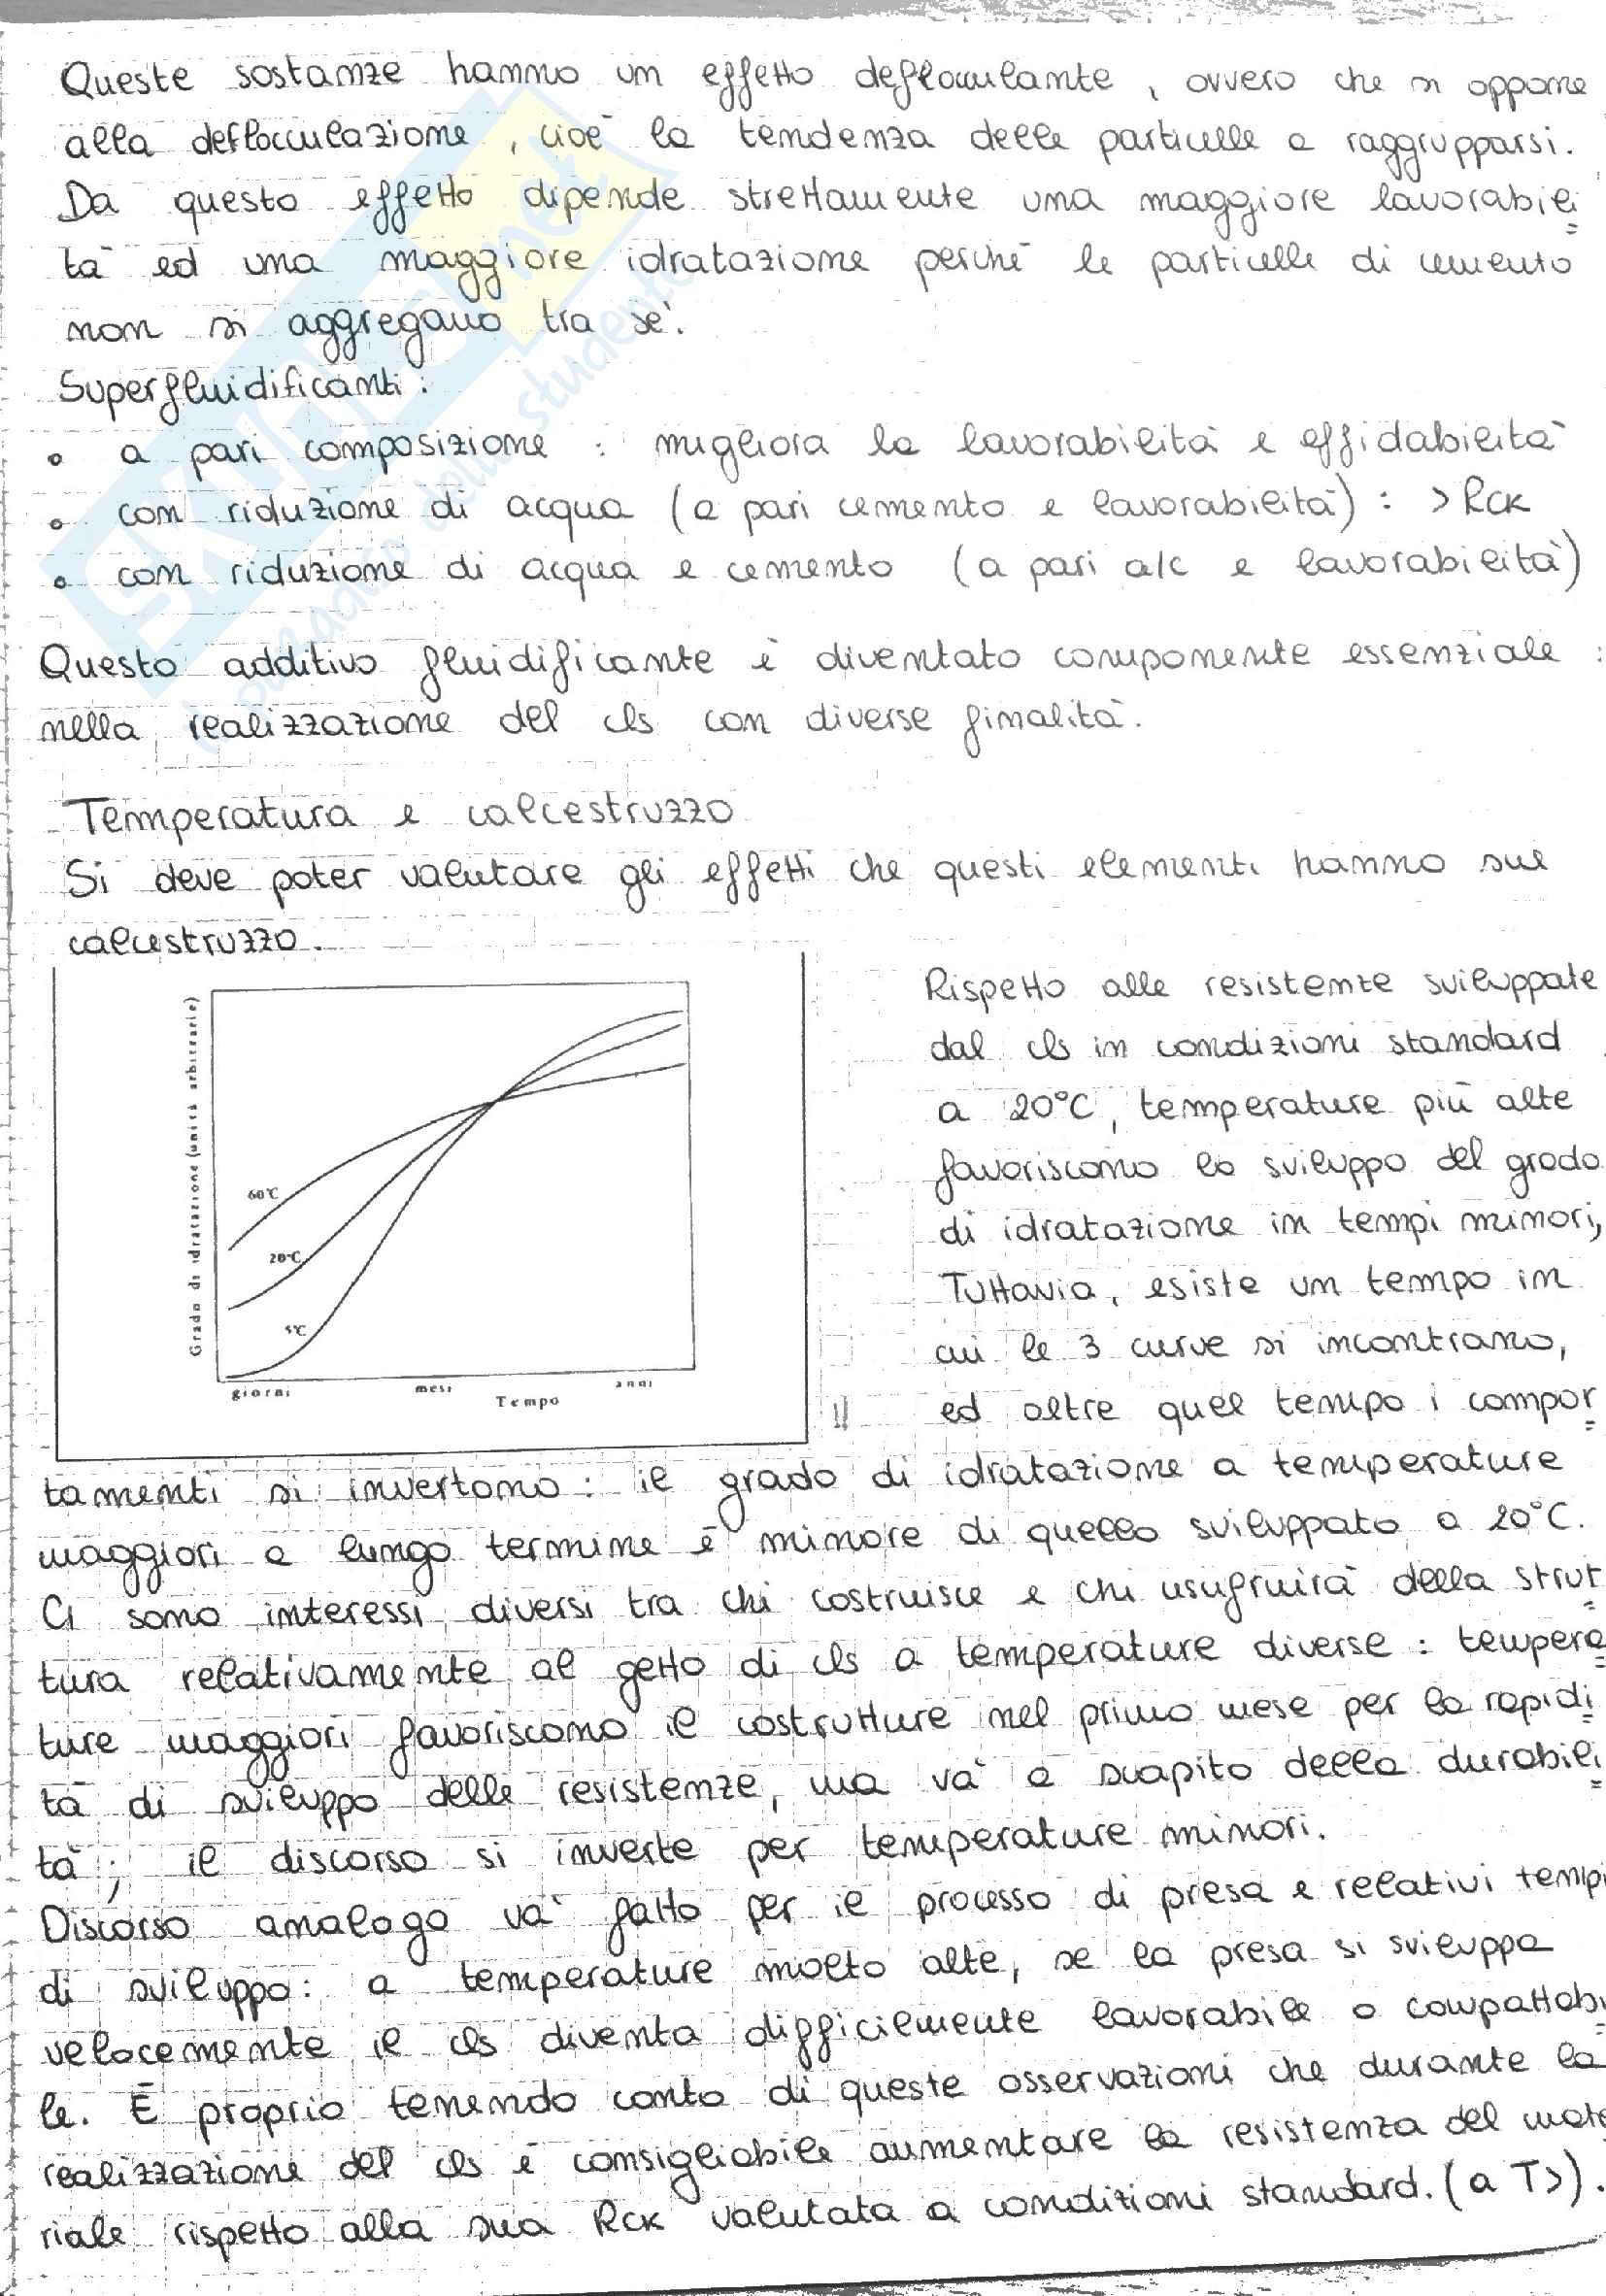 Queste sostanze hanno un effetto deflocculante, ovvero che si oppone
alla deflocculazione, cioè la tendenza delle particelle a raggrupparsi.
Da questo effetto dipende strettamente una maggiore lavorabili
tà ed una maggiore idratazione perchè le particelle di cemento
non si aggregano tra sè.
Superfluidificanti:
• a pari composizione: migliora la lavorabilità e affidabilità
• con riduzione di acqua (a pari cemento e lavorabilità): > Rck
• con riduzione di acqua e cemento (a pari a/c e lavorabilità)
Questo additivo fluidificante è diventato componente essenziale
nella realizzazione del cls con diverse finalità.
Temperatura e calcestruzzo
Si deve poter valutare gli effetti che questi elementi hanno sul
calcestruzzo.
Grado di idratazione (unità arbitrarie)
60°C
20°C
5°C
giorni mesi anni
Tempo
Rispetto alle resistenze sviluppate
dal cls in condizioni standard
a 20°C, temperature più alte
favoriscono lo sviluppo del grado
di idratazione in tempi minori,
Tuttavia, esiste un tempo in
cui le 3 curve si incontrano,
!! ed oltre quel tempo i compor
tamenti si invertono: il grado di idratazione a temperature
maggiori a lungo termine è minore di quello sviluppato a 20°C.
Ci sono interessi diversi tra chi costruisce e chi usufruirà della strut
tura relativamente al getto di cls a temperature diverse: tempera
ture maggiori favoriscono il costruttore nel primo mese per la rapidi
tà di sviluppo delle resistenze, ma va a scapito della durabili
tà; il discorso si inverte per temperature minori.
Discorso analogo va fatto per il processo di presa e relativi tempi
di sviluppo: a temperature molto alte, se la presa si sviluppa
velocemente il cls diventa difficilmente lavorabile o compattabi
le. È proprio tenendo conto di queste osservazioni che durante la
realizzazione del cls è consigliabile aumentare la resistenza del mate
riale rispetto alla sua Rck valutata a condizioni standard. (a T>).
SKUOLA.net
il paradiso dello studente